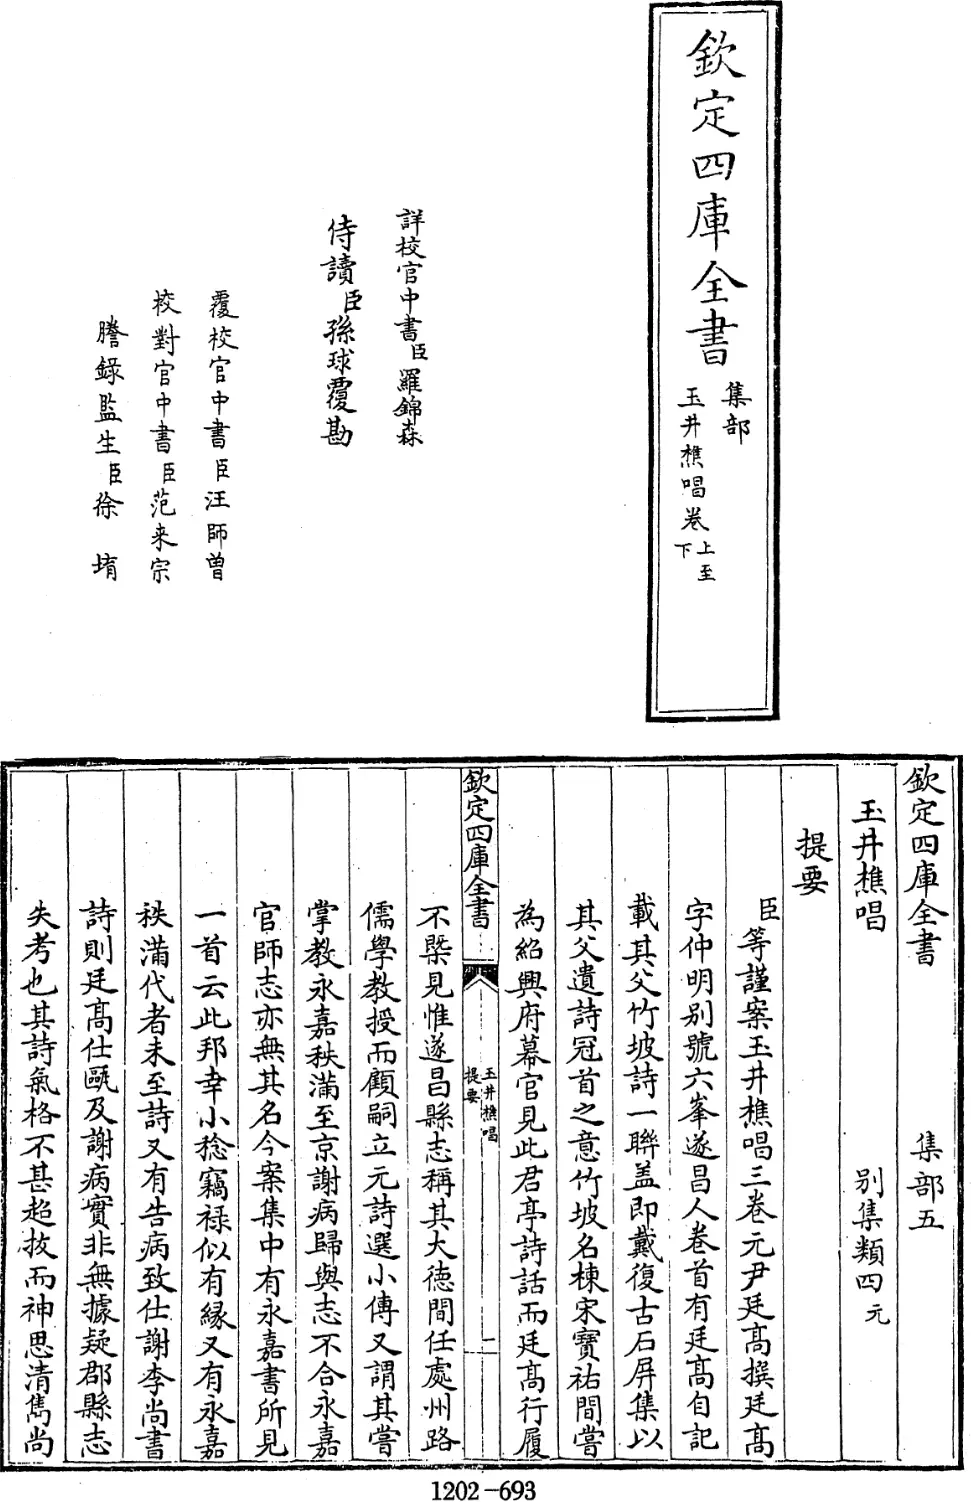 欽定四庫全書
集部
玉井樵唱卷上至下
詳校官中書臣羅錦森
侍讀臣孫球覆勘
覆校官中書臣汪師曾
校對官中書臣范来宗
謄錄監生臣徐堉
欽定四庫全書 集部五
玉井樵唱 别集類四元
提要
臣等謹案玉井樵唱三卷元尹廷髙撰廷髙
字仲明别號六峯遂昌人卷首有廷髙自記
載其父竹坡詩一聯盖即戴復古石屏集以
其父遺詩冠首之意竹坡名棟宋寳祐間嘗
為紹興府幕官見此君亭詩話而廷髙行履
欽定四庫全書
玉井樵唱
提要
一
不槩見惟遂昌縣志稱其大德間任處州路
儒學教授而顧嗣立元詩選小傳又謂其嘗
掌教永嘉秩滿至京謝病歸與志不合永嘉
官師志亦無其名今案集中有永嘉書所見
一首云此邦幸小稔竊禄似有縁又有永嘉
秩滿代者未至詩又有告病致仕謝李尚書
詩則廷髙仕甌及謝病實非無據疑郡縣志
失考也其詩氣格不甚超拔而神思清雋尚
1202-693